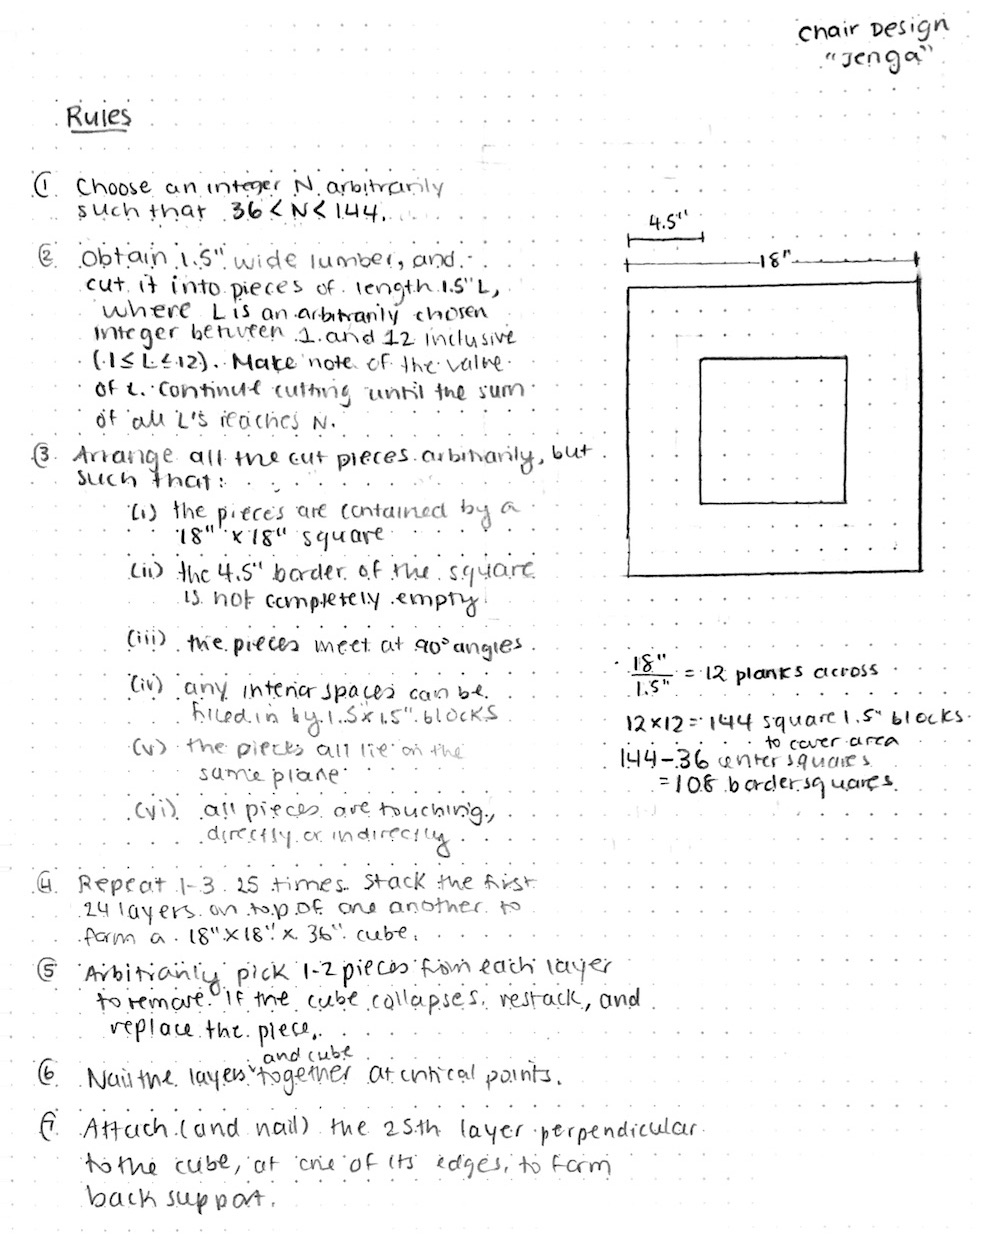 Chair Design
"Jenga"
Rules
① Choose an integer N arbitrarily
such that 36 < N < 144.
② Obtain 1.5" wide lumber, and
cut it into pieces of length 1.5" L,
where L is an arbitrarily chosen
integer between 1 and 12 inclusive
(1 ≤ L ≤ 12). Make note of the value
of L. Continue cutting until the sum
of all L's reaches N.
③ Arrange all the cut pieces arbitrarily, but
such that:
(i) the pieces are contained by a
18" x 18" square
(ii) the 4.5" border of the square
is not completely empty
(iii) the pieces meet at 90° angles.
(iv) any interior spaces can be
filled in by 1.5 x 1.5" blocks
(v) the pieces all lie on the
same plane
(vi) all pieces are touching,
directly or indirectly
④ Repeat 1-3 25 times. Stack the first
24 layers on top of one another to
form a 18" x 18" x 36" cube.
⑤ Arbitrarily pick 1-2 pieces from each layer
to remove. If the cube collapses, restack, and
replace the piece.
⑥ Nail the layers and cube together at critical points.
⑦ Attach (and nail) the 25th layer perpendicular
to the cube, at one of its edges, to form
back support.
4.5"
18"
18"/1.5" = 12 planks across
12 x 12 = 144 square 1.5" blocks
to cover area
144 - 36 center squares
= 108 border squares.